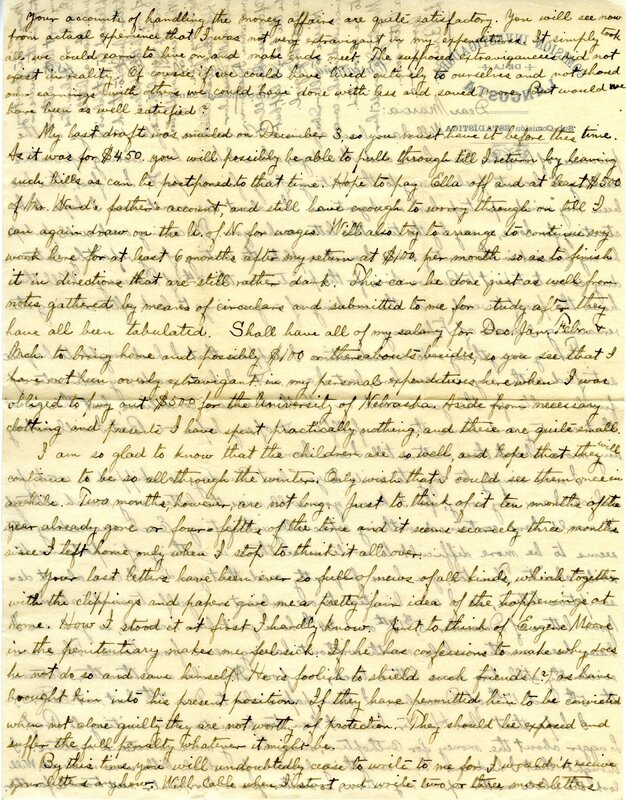 Your accounts of handling the money affairs are quite satisfactory. You will see now
from actual experience that I was not very extravigant in my expenditures. It simply took
all we could earn to live on and make ends meet. The supposed extravigancies did not
exist in reality. Of course if we could have lived entirely to ourselves and not shared
our earnings with others we could have done with less and saved more. But would we
have been as well satisfied?
My last draft was mailed on December 3, so you must have it before this time.
As it was for $450 you will possibly be able to pull through till I return by leaving
such bills as can be postponed to that time. Hope to pay Ella off and at least $500
of Mr. father's account, and still have enough to worry through on till I
can again draw on the U. of N. for wages. Will also try to arrange to continue my
work here for at least 6 months after my return at $100 per month so as to finish
it in directions that are still rather dark. This can be done just as well from
notes gathered by means of circulars and submitted to me for study after they
have all been tabulated. Shall have all of my salary for Dec., Jan., Febr. &
Mch. to bring home and possibly $100 or thereabouts besides, so you see that I
have not been overly extravigant in my personal expenditures here when I was
obliged to pay out $500 for the University of Nebraska. Aside from necessary
clothing and presents I have spent practically nothing, and these are quite small.
I am so glad to know that the children are so well, and hope that they will
continue to be so all through the winter. Only wish that I could see them once in
awhile. Two months, however, are not long. Just to think of it ten months of the
year already gone or four fifths of the time and it seems scarsely three months
since I left home only when I stop to think it all over.
Your last letters have been ever so full of news of all kinds, which together
with the clippings and papers give me a pretty fair idea of the happenings at
home. How I stood it at first I hardly know. But to think of Eugene Moore
in the penitentiary makes me feel sick. If he has confessions to make why does
he not do so and save himself. He is foolish to shield such friends(?) as have
brought him into his present position. If they have permitted him to be convicted
when not alone guilty they are not worthy of protection. They should be exposed and
suffer the full penalty whatever it might be.
By this time you will undoubtedly cease to write to me for I wouldn't receive
your letters anyhow. Will Cable when I start and write two or three more letters